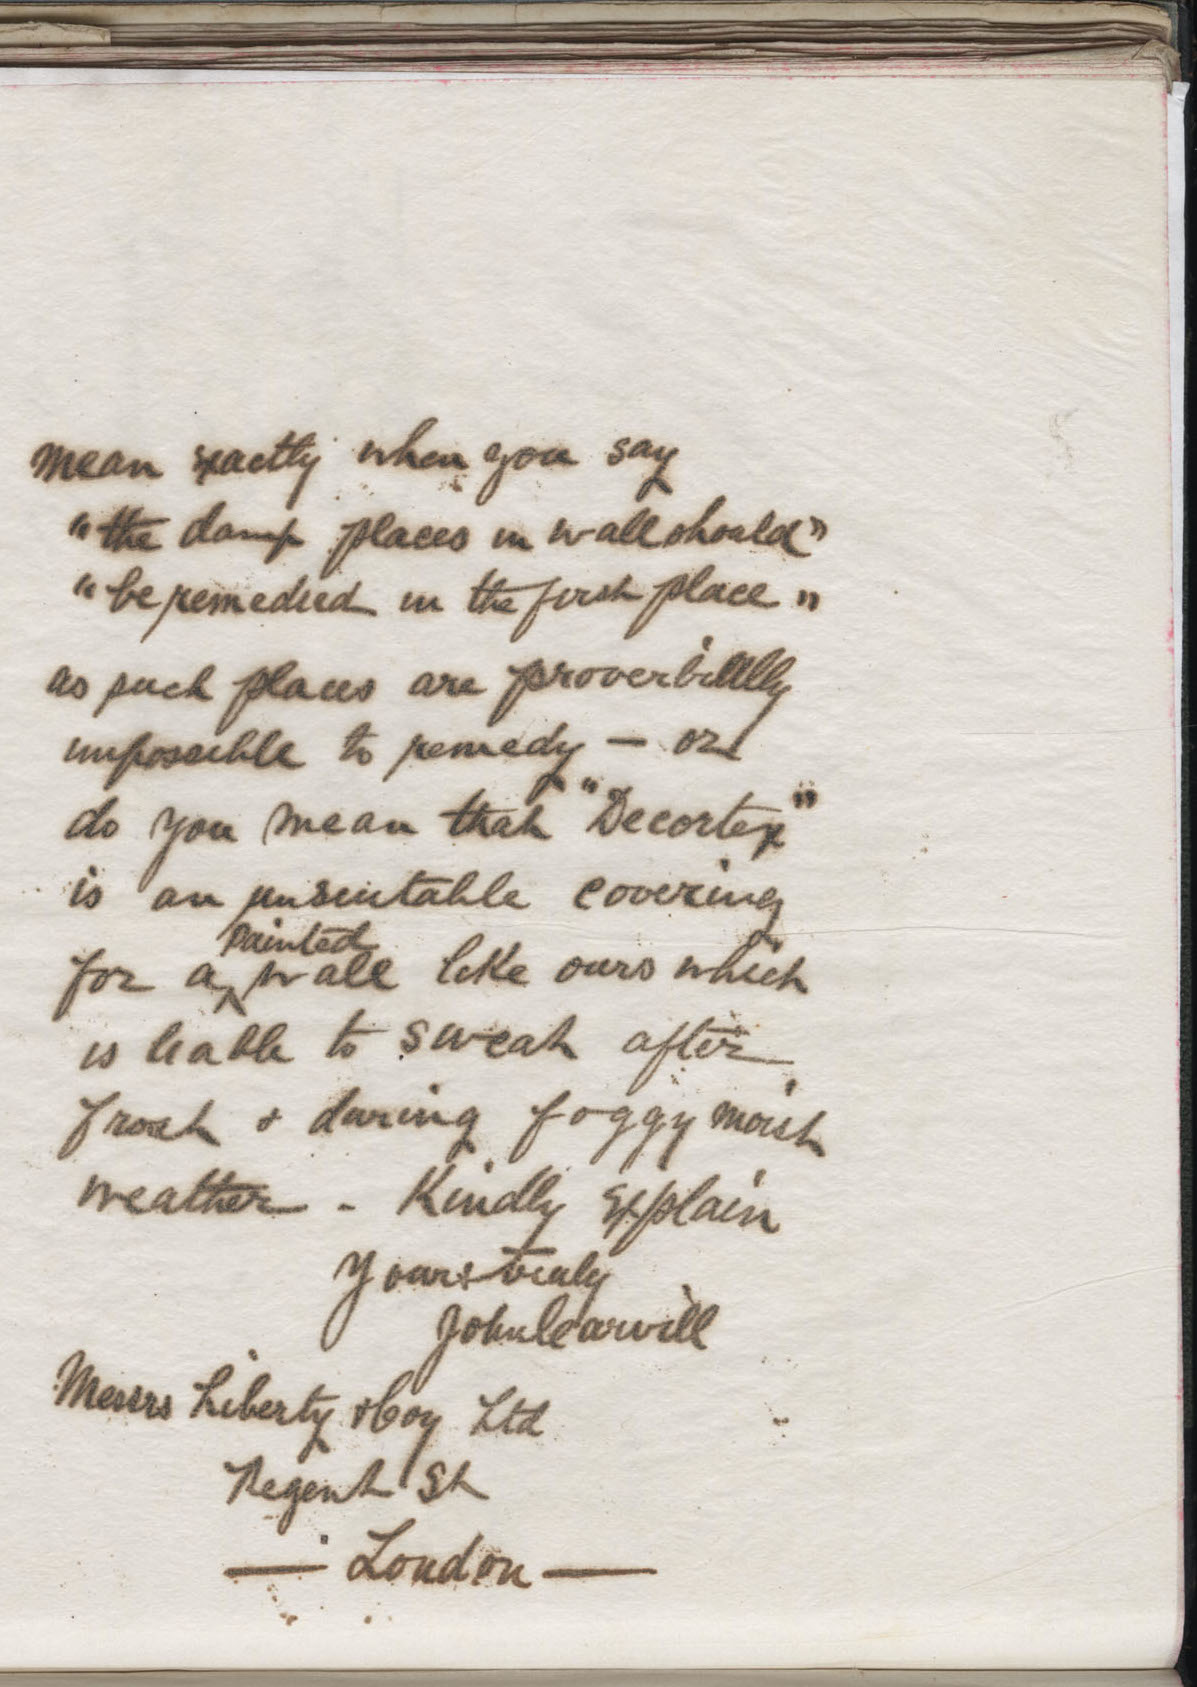 mean exactly when you say
"the damp places in wall should"
"be remedied in the first place"
as such places are proverbially
impossible to remedy — or
do you mean that "Decortex"
is an unsuitable covering
for a painted wall like ours which
is liable to sweat after
frost & during foggy moist
weather - Kindly explain
Yours truly
John Carvill
Messrs Liberty & Coy Ltd
Regent St
— London —